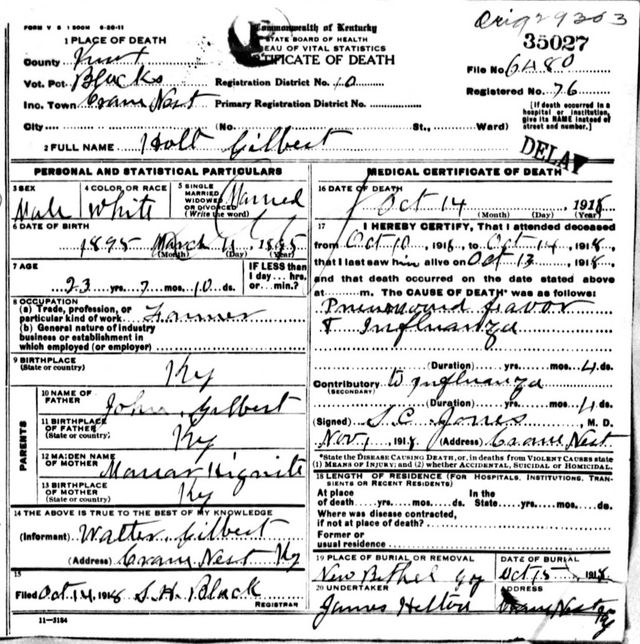 FORM V S 1 500M 6-20-11
Commonwealth of Kentucky
Orig 29303
STATE BOARD OF HEALTH
35027
1 PLACE OF DEATH
BUREAU OF VITAL STATISTICS
County Knox
CERTIFICATE OF DEATH
File No. 6480
Vot. Pct. Blacks
Registration District No. 10
Registered No. 76
Inc. Town Crane Nest
Primary Registration District No.
[If death occurred in a hospital or institution, give its NAME instead of street and number.]
City (No. St., Ward)
2 FULL NAME Holt Gilbert
DELAY
PERSONAL AND STATISTICAL PARTICULARS
3 SEX Male
4 COLOR OR RACE White
5 SINGLE MARRIED WIDOWED OR DIVORCED (Write the word) Married
6 DATE OF BIRTH
1895 March 4 1895
(Month) (Day) (Year)
7 AGE
23 yrs. 7 mos. 10 ds.
IF LESS than 1 day... hrs. or min.?
8 OCCUPATION
(a) Trade, profession, or particular kind of work Farmer
(b) General nature of industry business or establishment in which employed (or employer)
9 BIRTHPLACE (State or country) Ky
PARENTS
10 NAME OF FATHER John Gilbert
11 BIRTHPLACE OF FATHER (State or country) Ky
12 MAIDEN NAME OF MOTHER Hignite
13 BIRTHPLACE OF MOTHER (State or country) Ky
14 THE ABOVE IS TRUE TO THE BEST OF MY KNOWLEDGE
(Informant) Walter Gilbert
(Address) Crane Nest Ky
15
Filed Oct 14 1918 S.H. Black
REGISTRAR
11-3184
MEDICAL CERTIFICATE OF DEATH
16 DATE OF DEATH
Oct 14 1918
(Month) (Day) (Year)
17 I HEREBY CERTIFY, That I attended deceased
from Oct 10, 1918, to Oct 14, 1918,
that I last saw him alive on Oct 13, 1918,
and that death occurred on the date stated above
at m. The CAUSE OF DEATH* was as follows:
Influanza
(Duration) yrs. mos. 4 ds.
Contributory Influanza
(SECONDARY)
(Duration) yrs. mos. 4 ds.
(Signed) Jones, M. D.
Nov 1, 1918 (Address) Crane Nest
*State the DISEASE CAUSING DEATH, or, in deaths from VIOLENT CAUSES state (1) MEANS OF INJURY; and (2) whether ACCIDENTAL, SUICIDAL or HOMICIDAL.
18 LENGTH OF RESIDENCE (FOR HOSPITALS, INSTITUTIONS, TRANSIENTS OR RECENT RESIDENTS)
At place of death yrs. mos. ds. In the State yrs. mos. ds.
Where was disease contracted, if not at place of death?
Former or usual residence
19 PLACE OF BURIAL OR REMOVAL
DATE OF BURIAL
New Bethel
Oct 15, 1918
20 UNDERTAKER
ADDRESS
James Helton
Crane Nest Ky